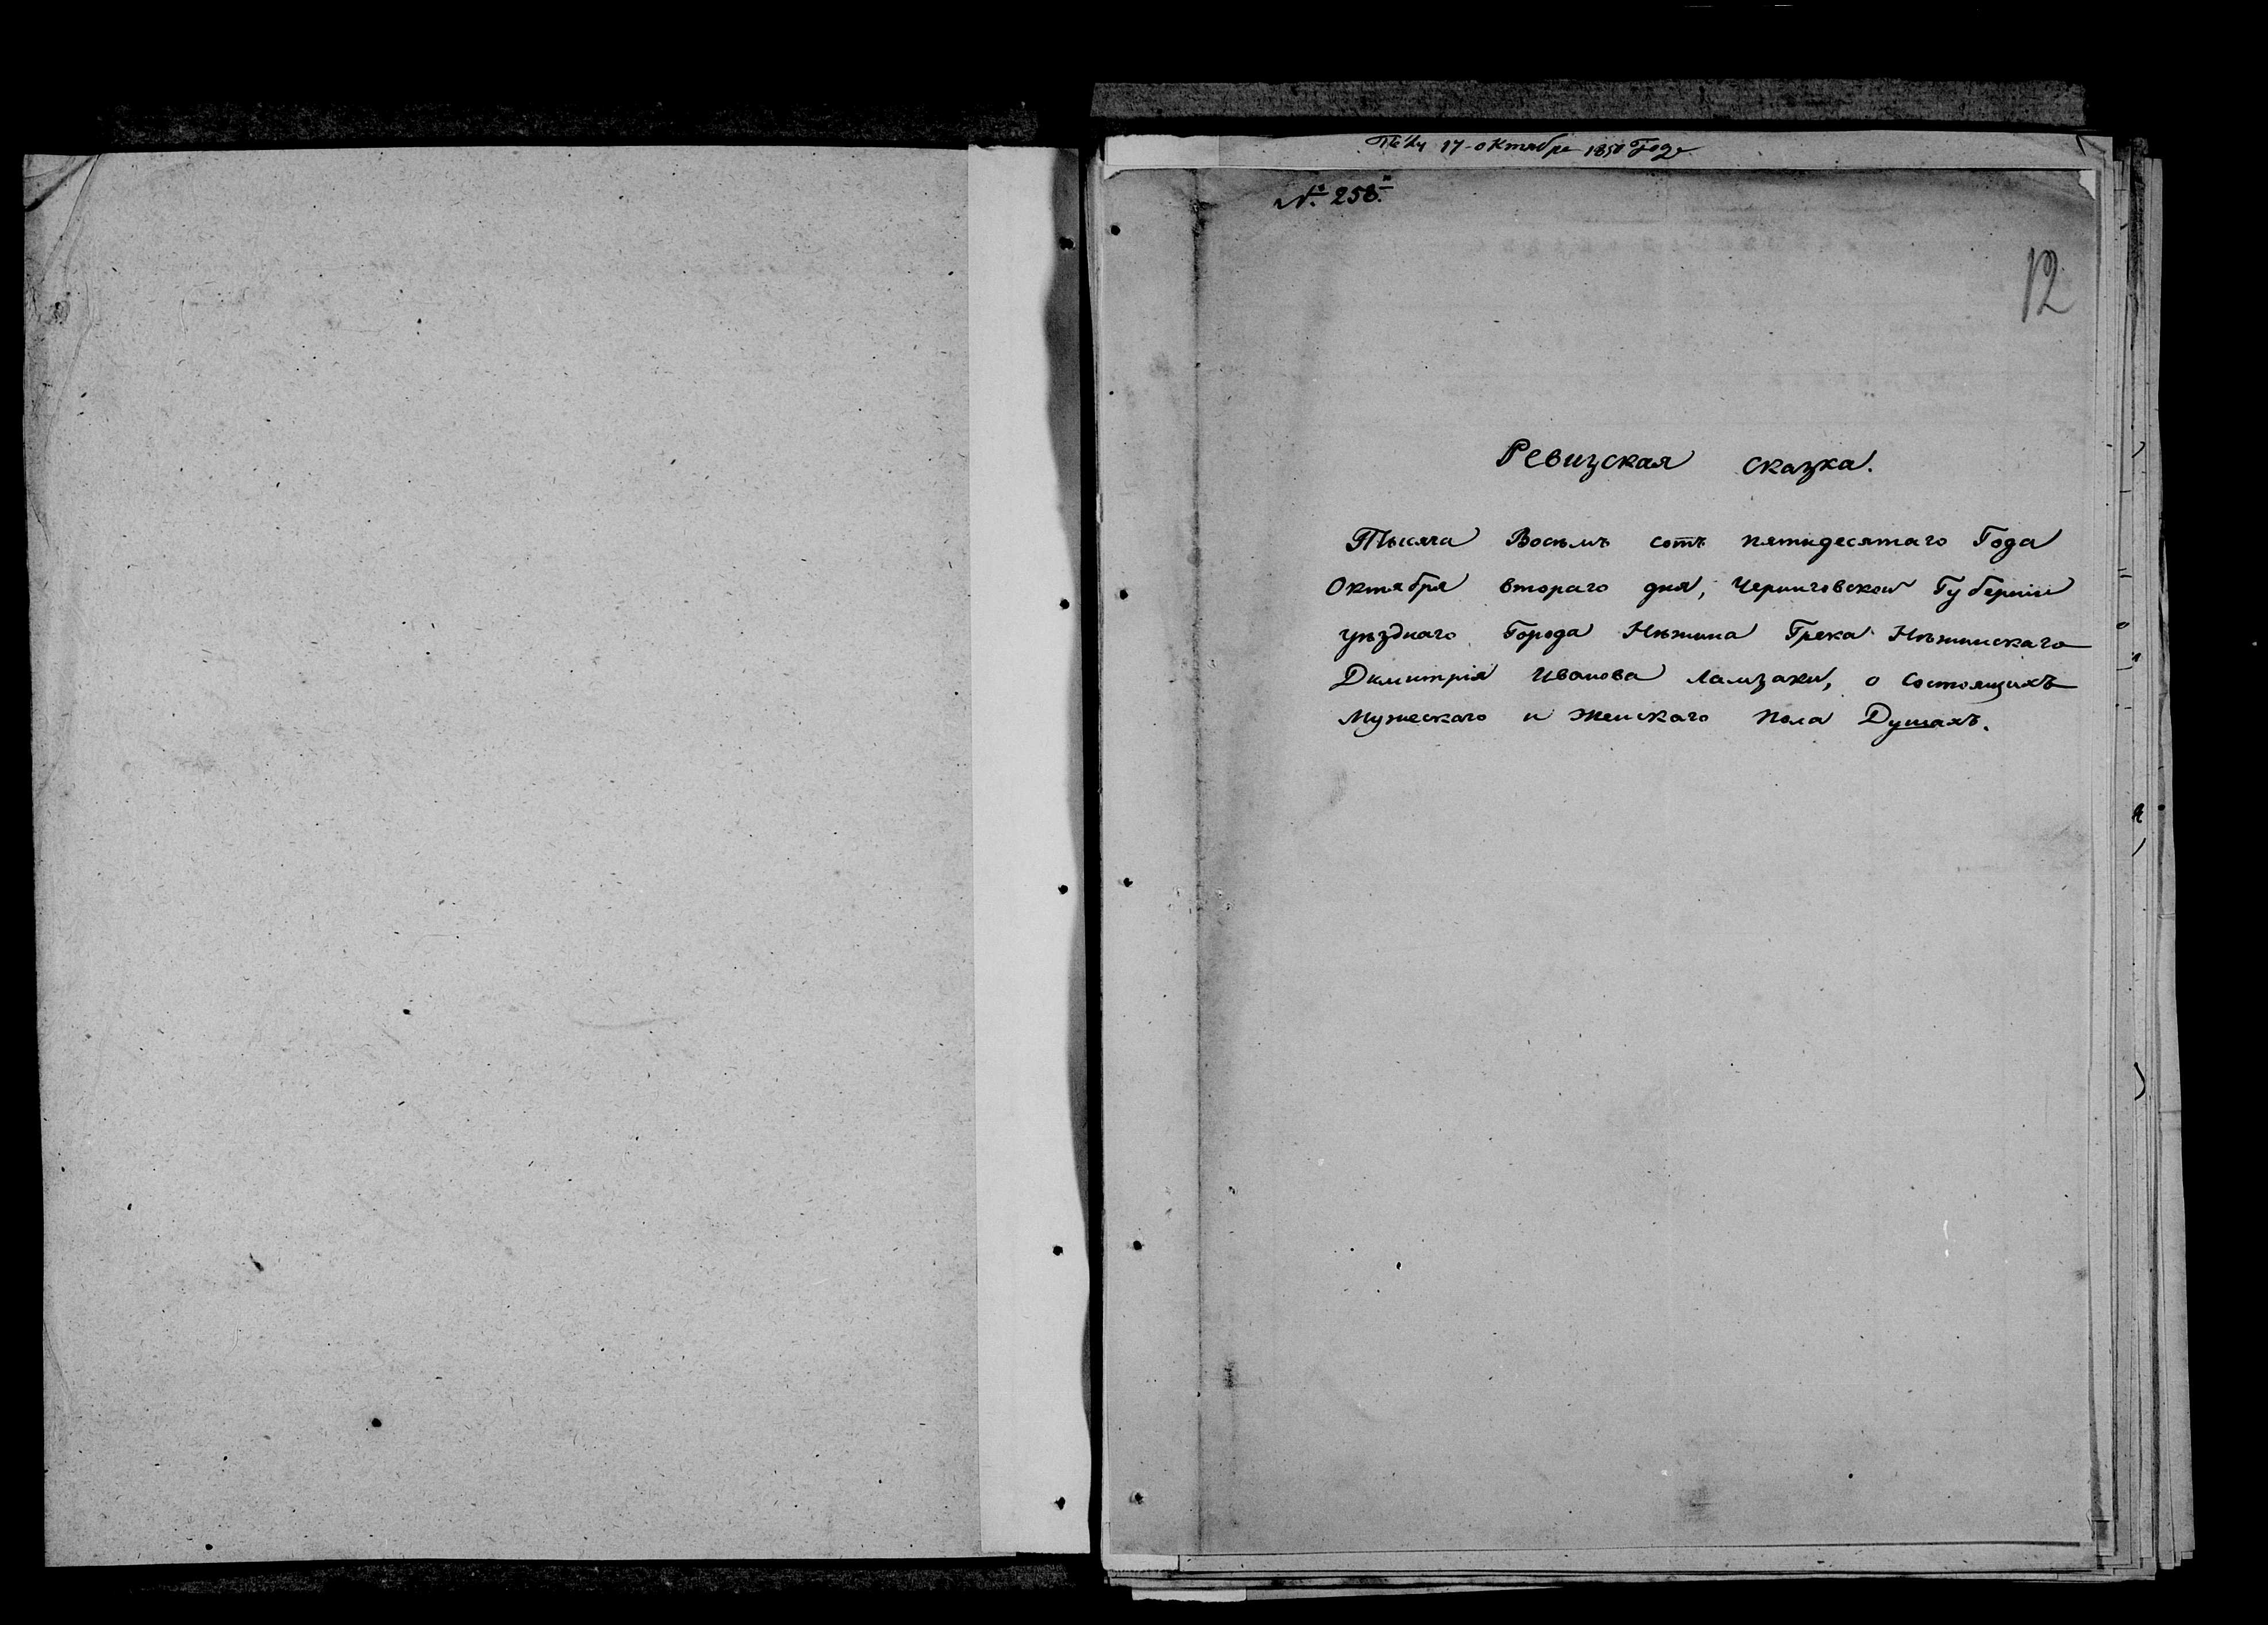 17 октября 1850 Года
№ 258.
12
Ревизская сказка.
Тысяча Восемь сотъ пятидесятаго Года
Октября втораго дня, Черниговской Губерніи
уѣзднаго Города Нѣжина Грека Нѣжинскаго
Димитрія Иванова Ламзаки, о состоящихъ
Мужескаго и Женскаго пола Душахъ.